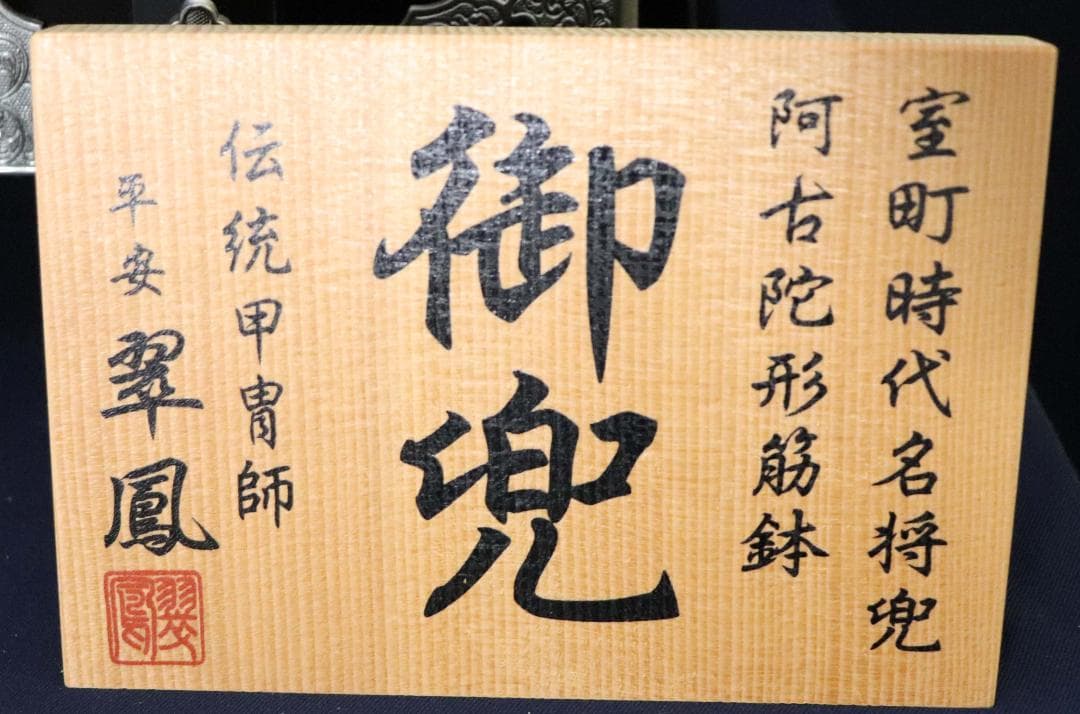 室町時代名将兜
阿古陀形筋鉢
御兜
伝統甲冑師
平安 翠鳳
翠鳳